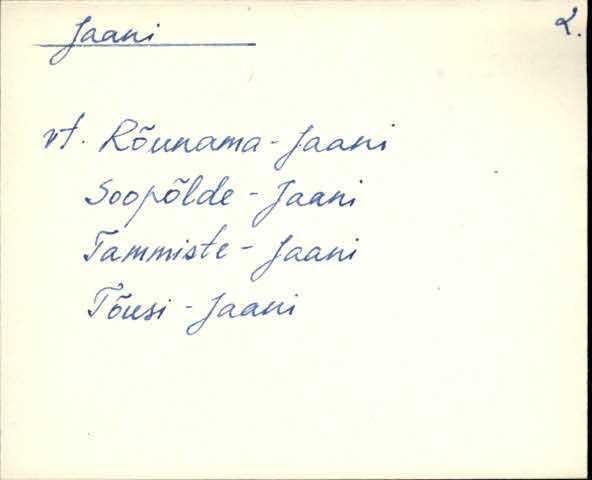 Jaani
2.
vt. Rõunama-Jaani
Soopõlde-Jaani
Tammiste-Jaani
Tõusi-Jaani